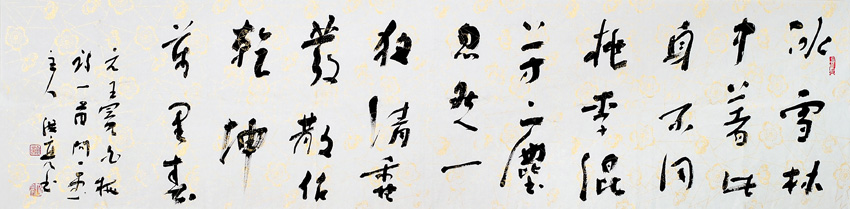 冰雪林
中著此
身不同
桃李混
芳塵
忽然一
夜清香
發散作
乾坤
萬里春
元王冕白梅
詩一首
主人
書